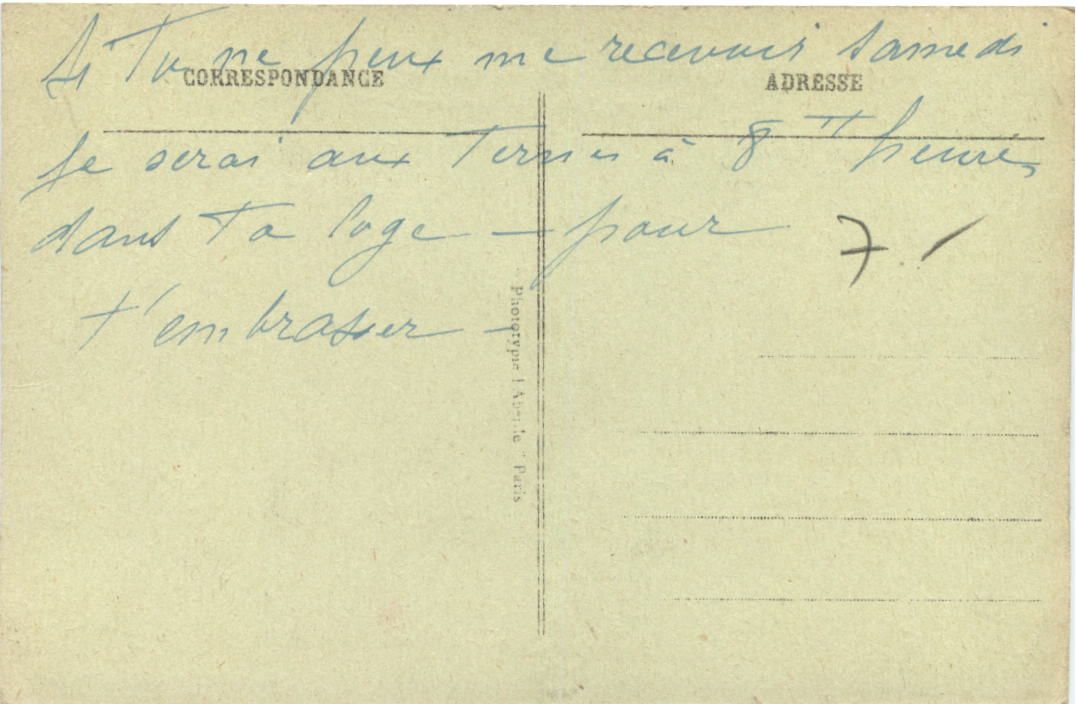 Si Tu ne peux me recevoir Samedi
CORRESPONDANCE
ADRESSE
Je serai aux Ternes à 8 heures
dans Ta loge – pour
t'embrasser –
7.
Phototypie l'Abeille Paris